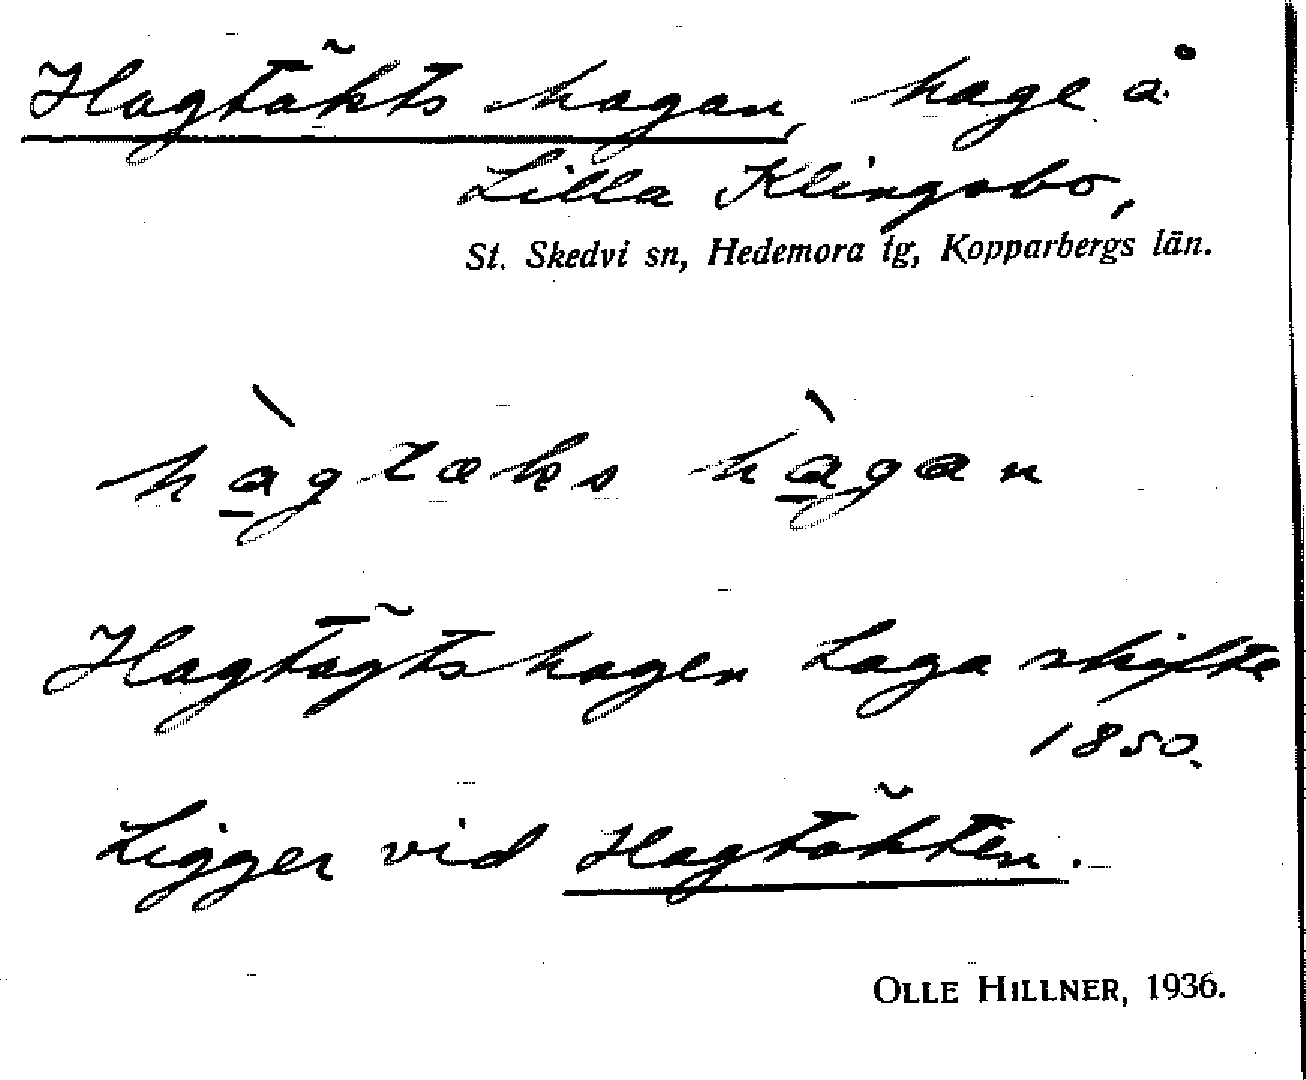 Hagtäkts hagan, hage å
Lilla Klingsbo,
St. Skedvi sn, Hedemora tg, Kopparbergs län.
hàgtæks hàgan
Hagtägtshagen Laga skifte
1850.
Ligger vid Hagtäkten.
OLLE HILLNER, 1936.